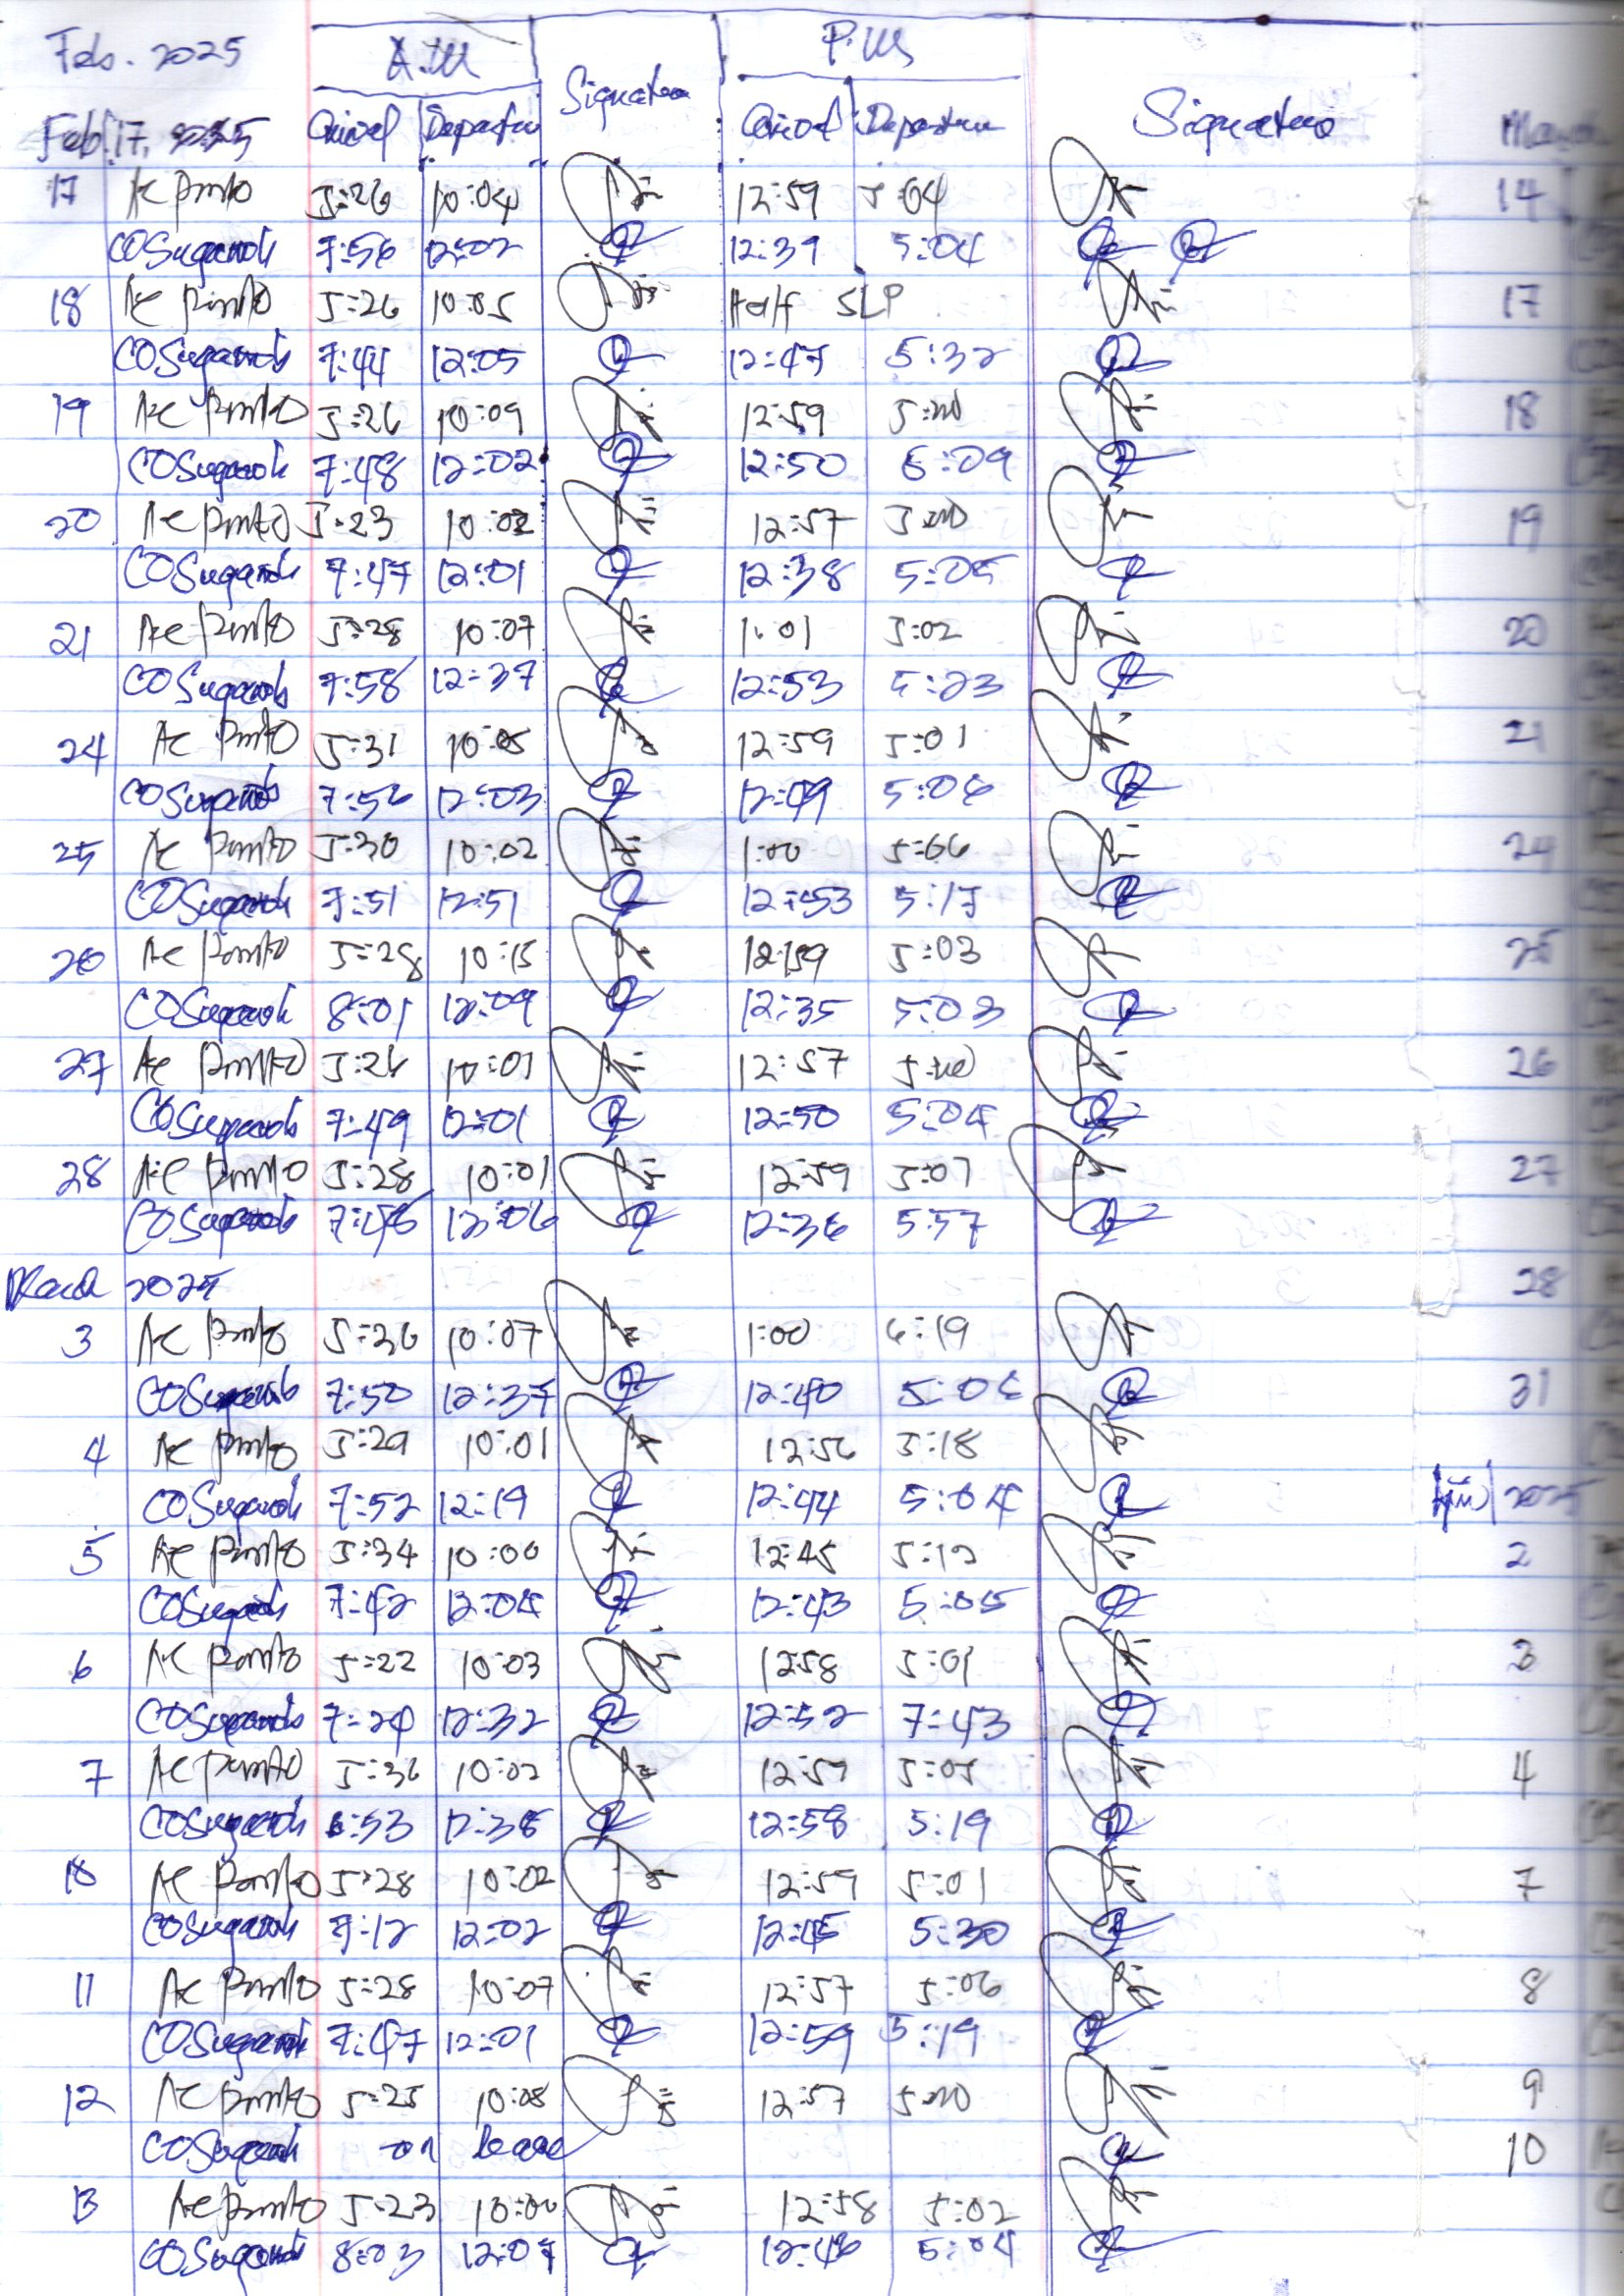 Feb. 2025 A.M Signature P.M Signature
Feb 17, 2025 Arrival Departure Arrival Departure
17 AC Pinto 5:26 10:04 12:59 5:04
COSuganob 7:56 12:02 12:39 5:04
18 AC Pinto 5:26 10:05 Half SLP
COSuganob 7:44 12:05 12:47 5:32
19 AC Pinto 5:26 10:09 12:59 5:00
COSuganob 7:48 12:02 12:50 6:09
20 AC Pinto 5:23 10:02 12:57 5:00
COSuganob 7:47 12:01 12:38 5:05
21 AC Pinto 5:28 10:07 1:01 5:02
COSuganob 7:58 12:37 12:53 5:23
24 AC Pinto 5:31 10:05 12:59 5:01
COSuganob 7:56 12:03 12:49 5:06
25 AC Pinto 5:30 10:02 1:00 5:06
COSuganob 7:51 12:51 12:53 5:17
26 AC Pinto 5:28 10:15 12:59 5:03
COSuganob 8:01 12:09 12:35 5:03
27 AC Pinto 5:26 10:01 12:57 5:00
COSuganob 7:49 12:01 12:50 5:04
28 AC Pinto 5:28 10:01 12:59 5:07
COSuganob 7:46 12:06 12:36 5:57
March 2025
3 AC Pinto 5:26 10:07 1:00 6:19
COSuganob 7:50 12:37 12:40 5:05
4 AC Pinto 5:29 10:01 12:56 5:18
COSuganob 7:52 12:19 12:44 5:04
5 AC Pinto 5:34 10:00 12:45 5:12
COSuganob 7:42 12:04 12:43 5:05
6 AC Pinto 5:22 10:03 12:58 5:01
COSuganob 7:24 12:32 12:52 7:43
7 AC Pinto 5:36 10:02 12:59 5:05
COSuganob 6:53 12:38 12:58 5:19
10 AC Pinto 5:28 10:02 12:59 5:01
COSuganob 7:12 12:02 12:45 5:30
11 AC Pinto 5:28 10:07 12:57 5:06
COSuganob 7:47 12:01 12:59 5:19
12 AC Pinto 5:25 10:08 12:57 5:00
COSuganob on leave
13 AC Pinto 5:23 10:00 12:58 5:02
COSuganob 8:03 12:07 12:46 5:04
14
17
18
19
20
21
24
25
26
27
28
31
2025
2
3
4
7
8
9
10